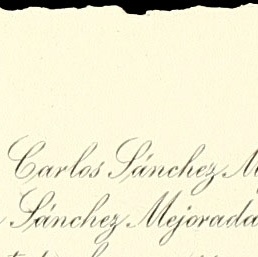 Carlos Sánchez
Sánchez Mejorada